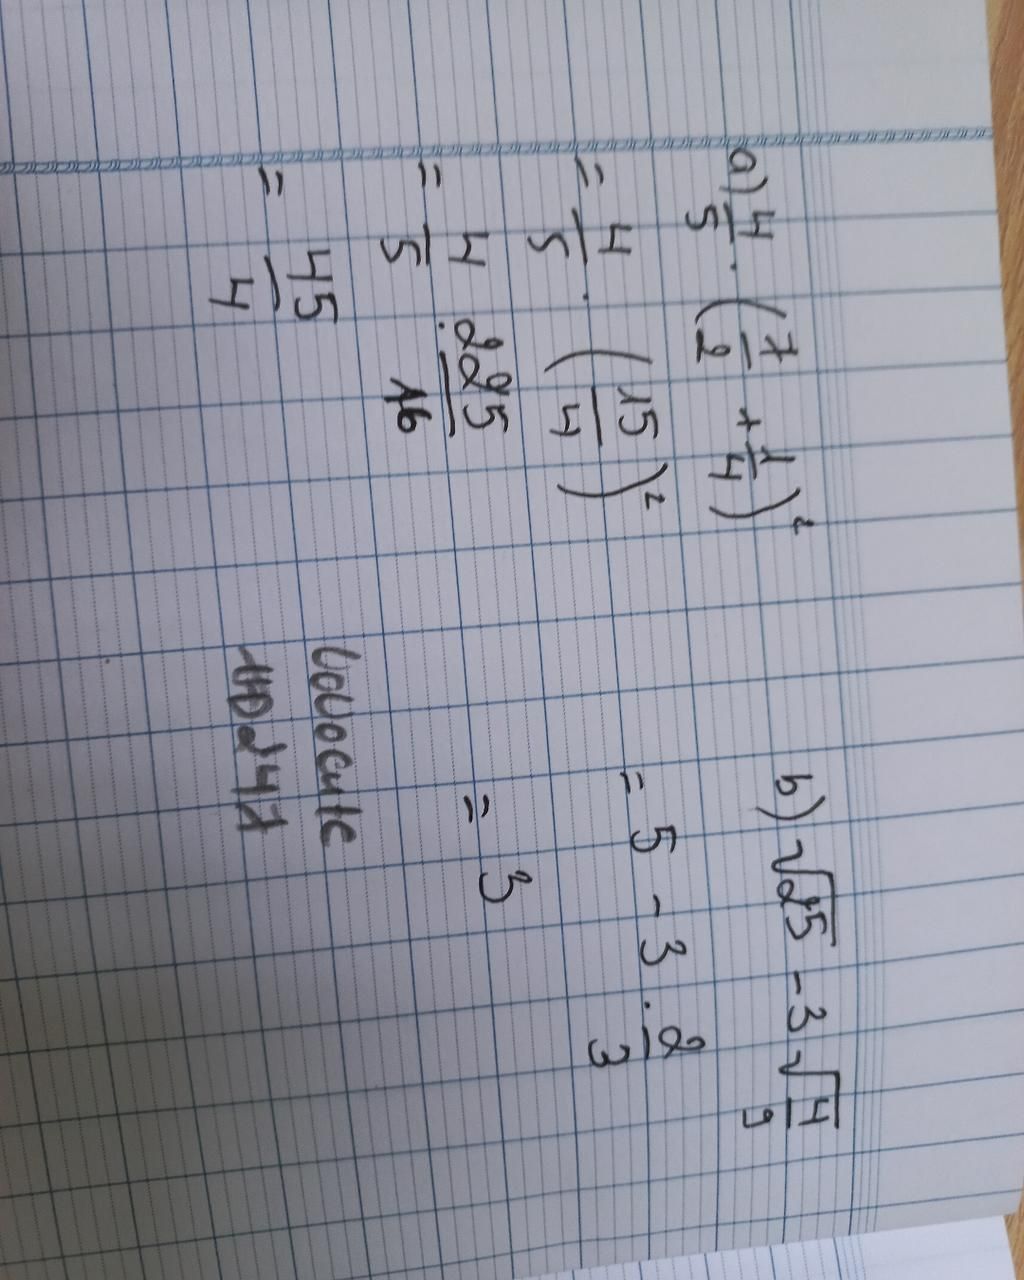 a) 4/5 . (7/2 + 1/4)²
= 4/5 . (15/4)²
= 4/5 . 225/16
= 45/4
b) √25 - 3√4/9
= 5 - 3 . 2/3
= 3
UoUocute
1HD247